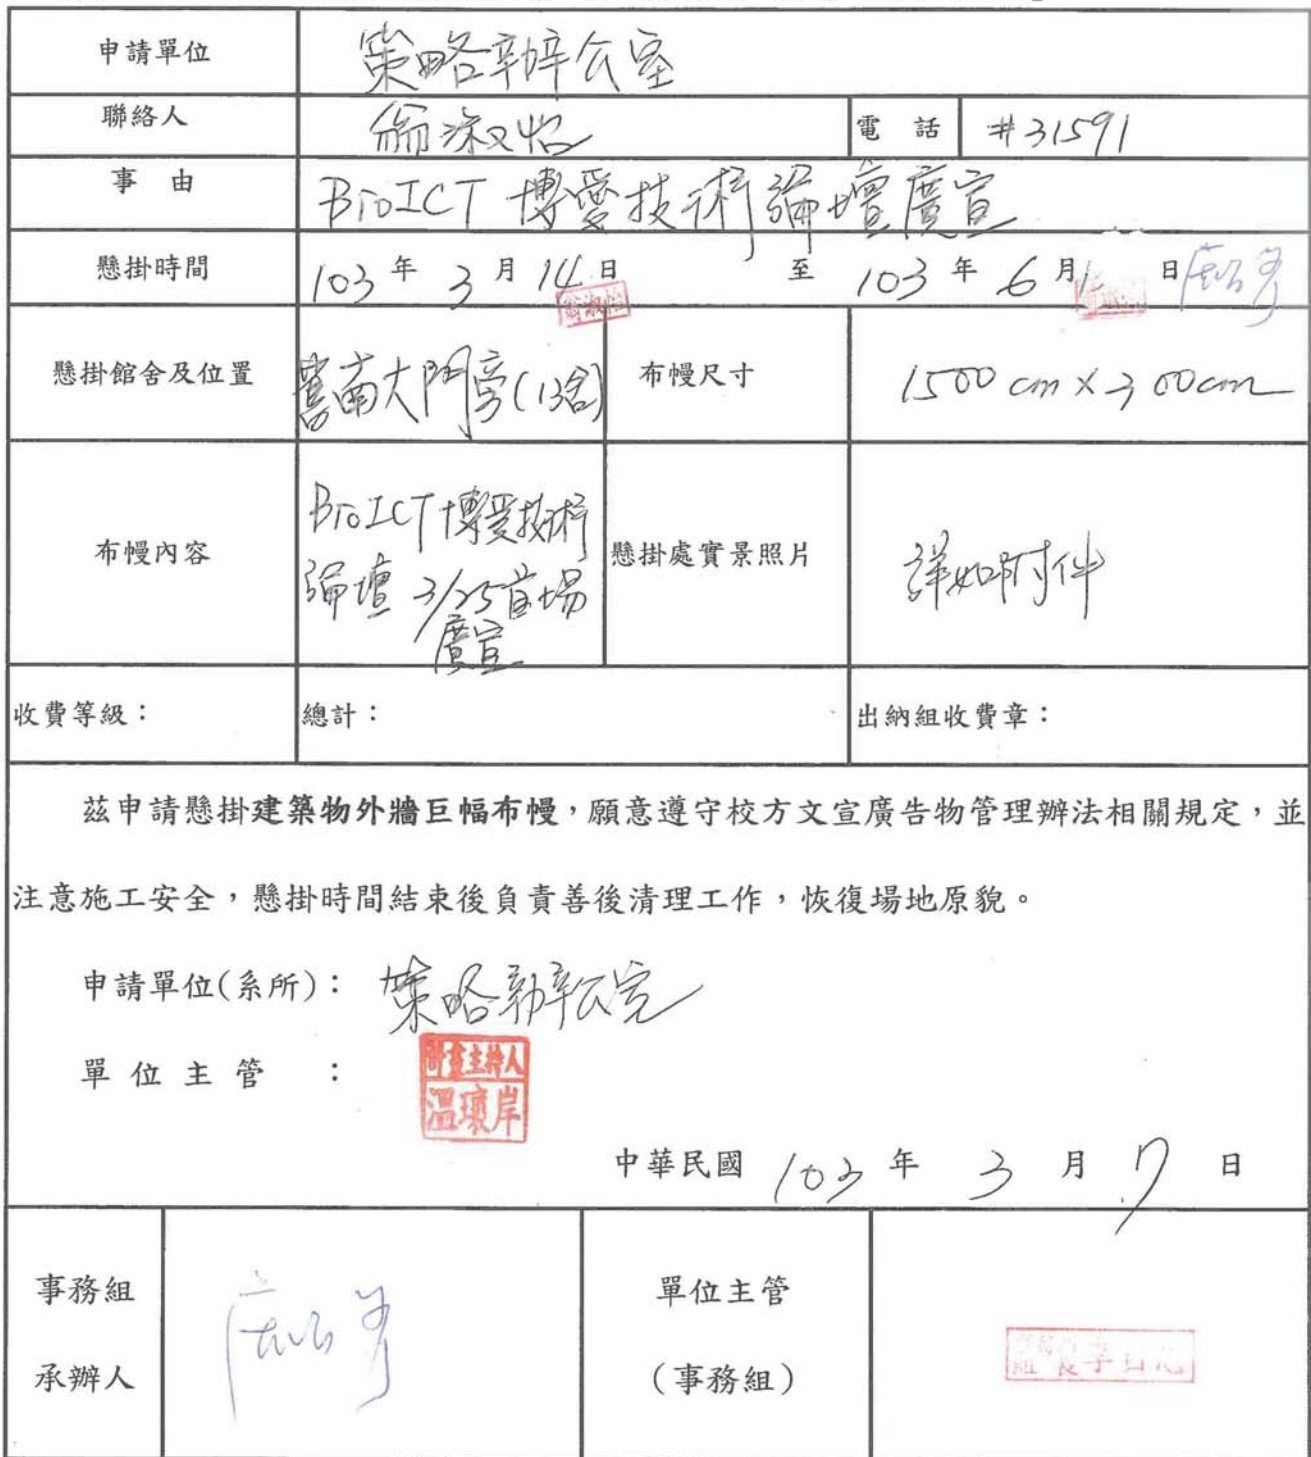 申請單位 策略辦公室
聯絡人 翁淑怡 電話 #31591
事由 BioICT 博愛技術論壇廣宣
懸掛時間 103年3月14日 至 103年6月1日
翁淑怡
懸掛館舍及位置 舊南大門旁(13舍) 布幔尺寸 1500cm×300cm
布幔內容 懸掛處實景照片 詳如附件
BioICT博愛技術
論壇 3/25首場
廣宣
收費等級: 總計: 出納組收費章:
茲申請懸掛建築物外牆巨幅布幔,願意遵守校方文宣廣告物管理辦法相關規定,並
注意施工安全,懸掛時間結束後負責善後清理工作,恢復場地原貌。
申請單位(系所): 策略辦公室
單位主管 :
計畫主持人
溫瓌岸
中華民國 103年3月7日
事務組 單位主管
承辦人 (事務組)